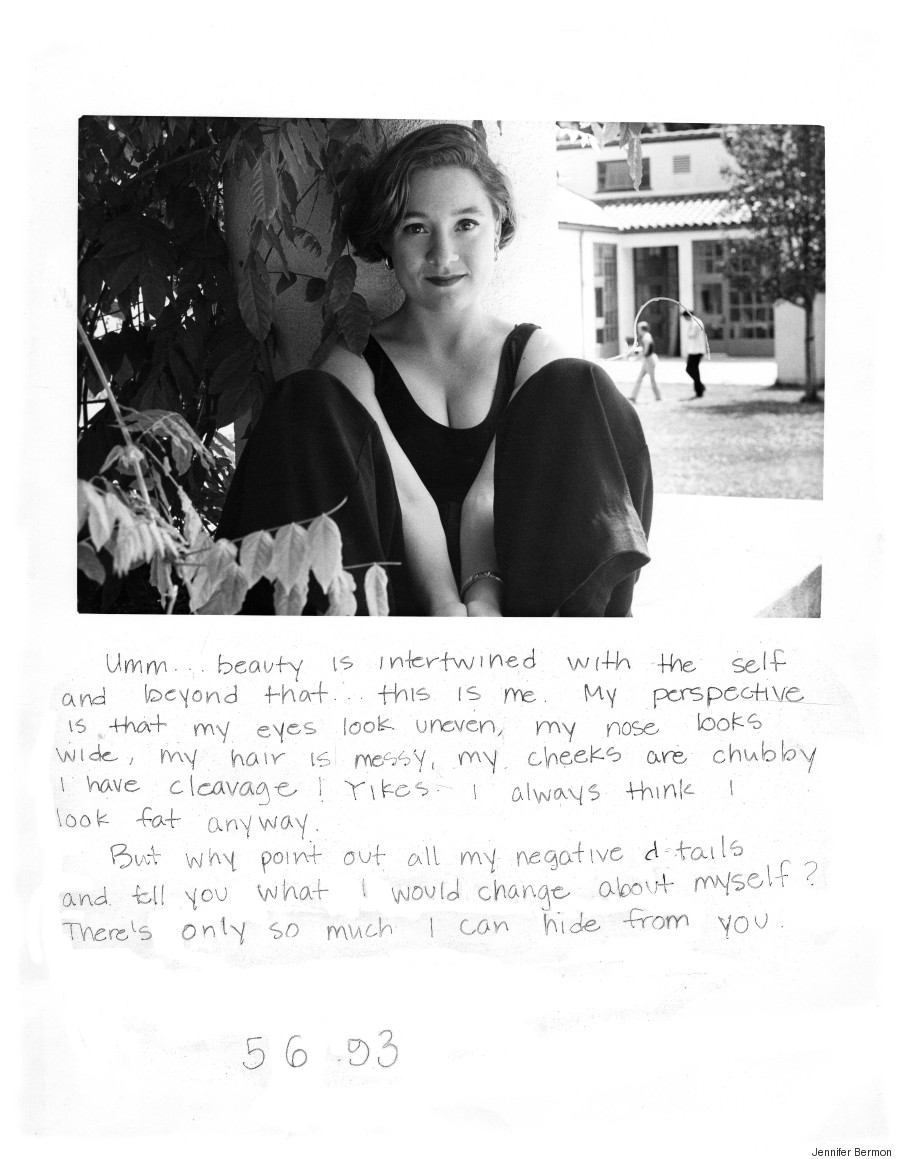 Umm... beauty is intertwined with the self
and beyond that... this is me. My perspective
is that my eyes look uneven, my nose looks
wide, my hair is messy, my cheeks are chubby
I have cleavage! Yikes- I always think I
look fat anyway.
But why point out all my negative d-tails
and tell you what I would change about myself?
There's only so much I can hide from you.
5 6 .93
Jennifer Bermon